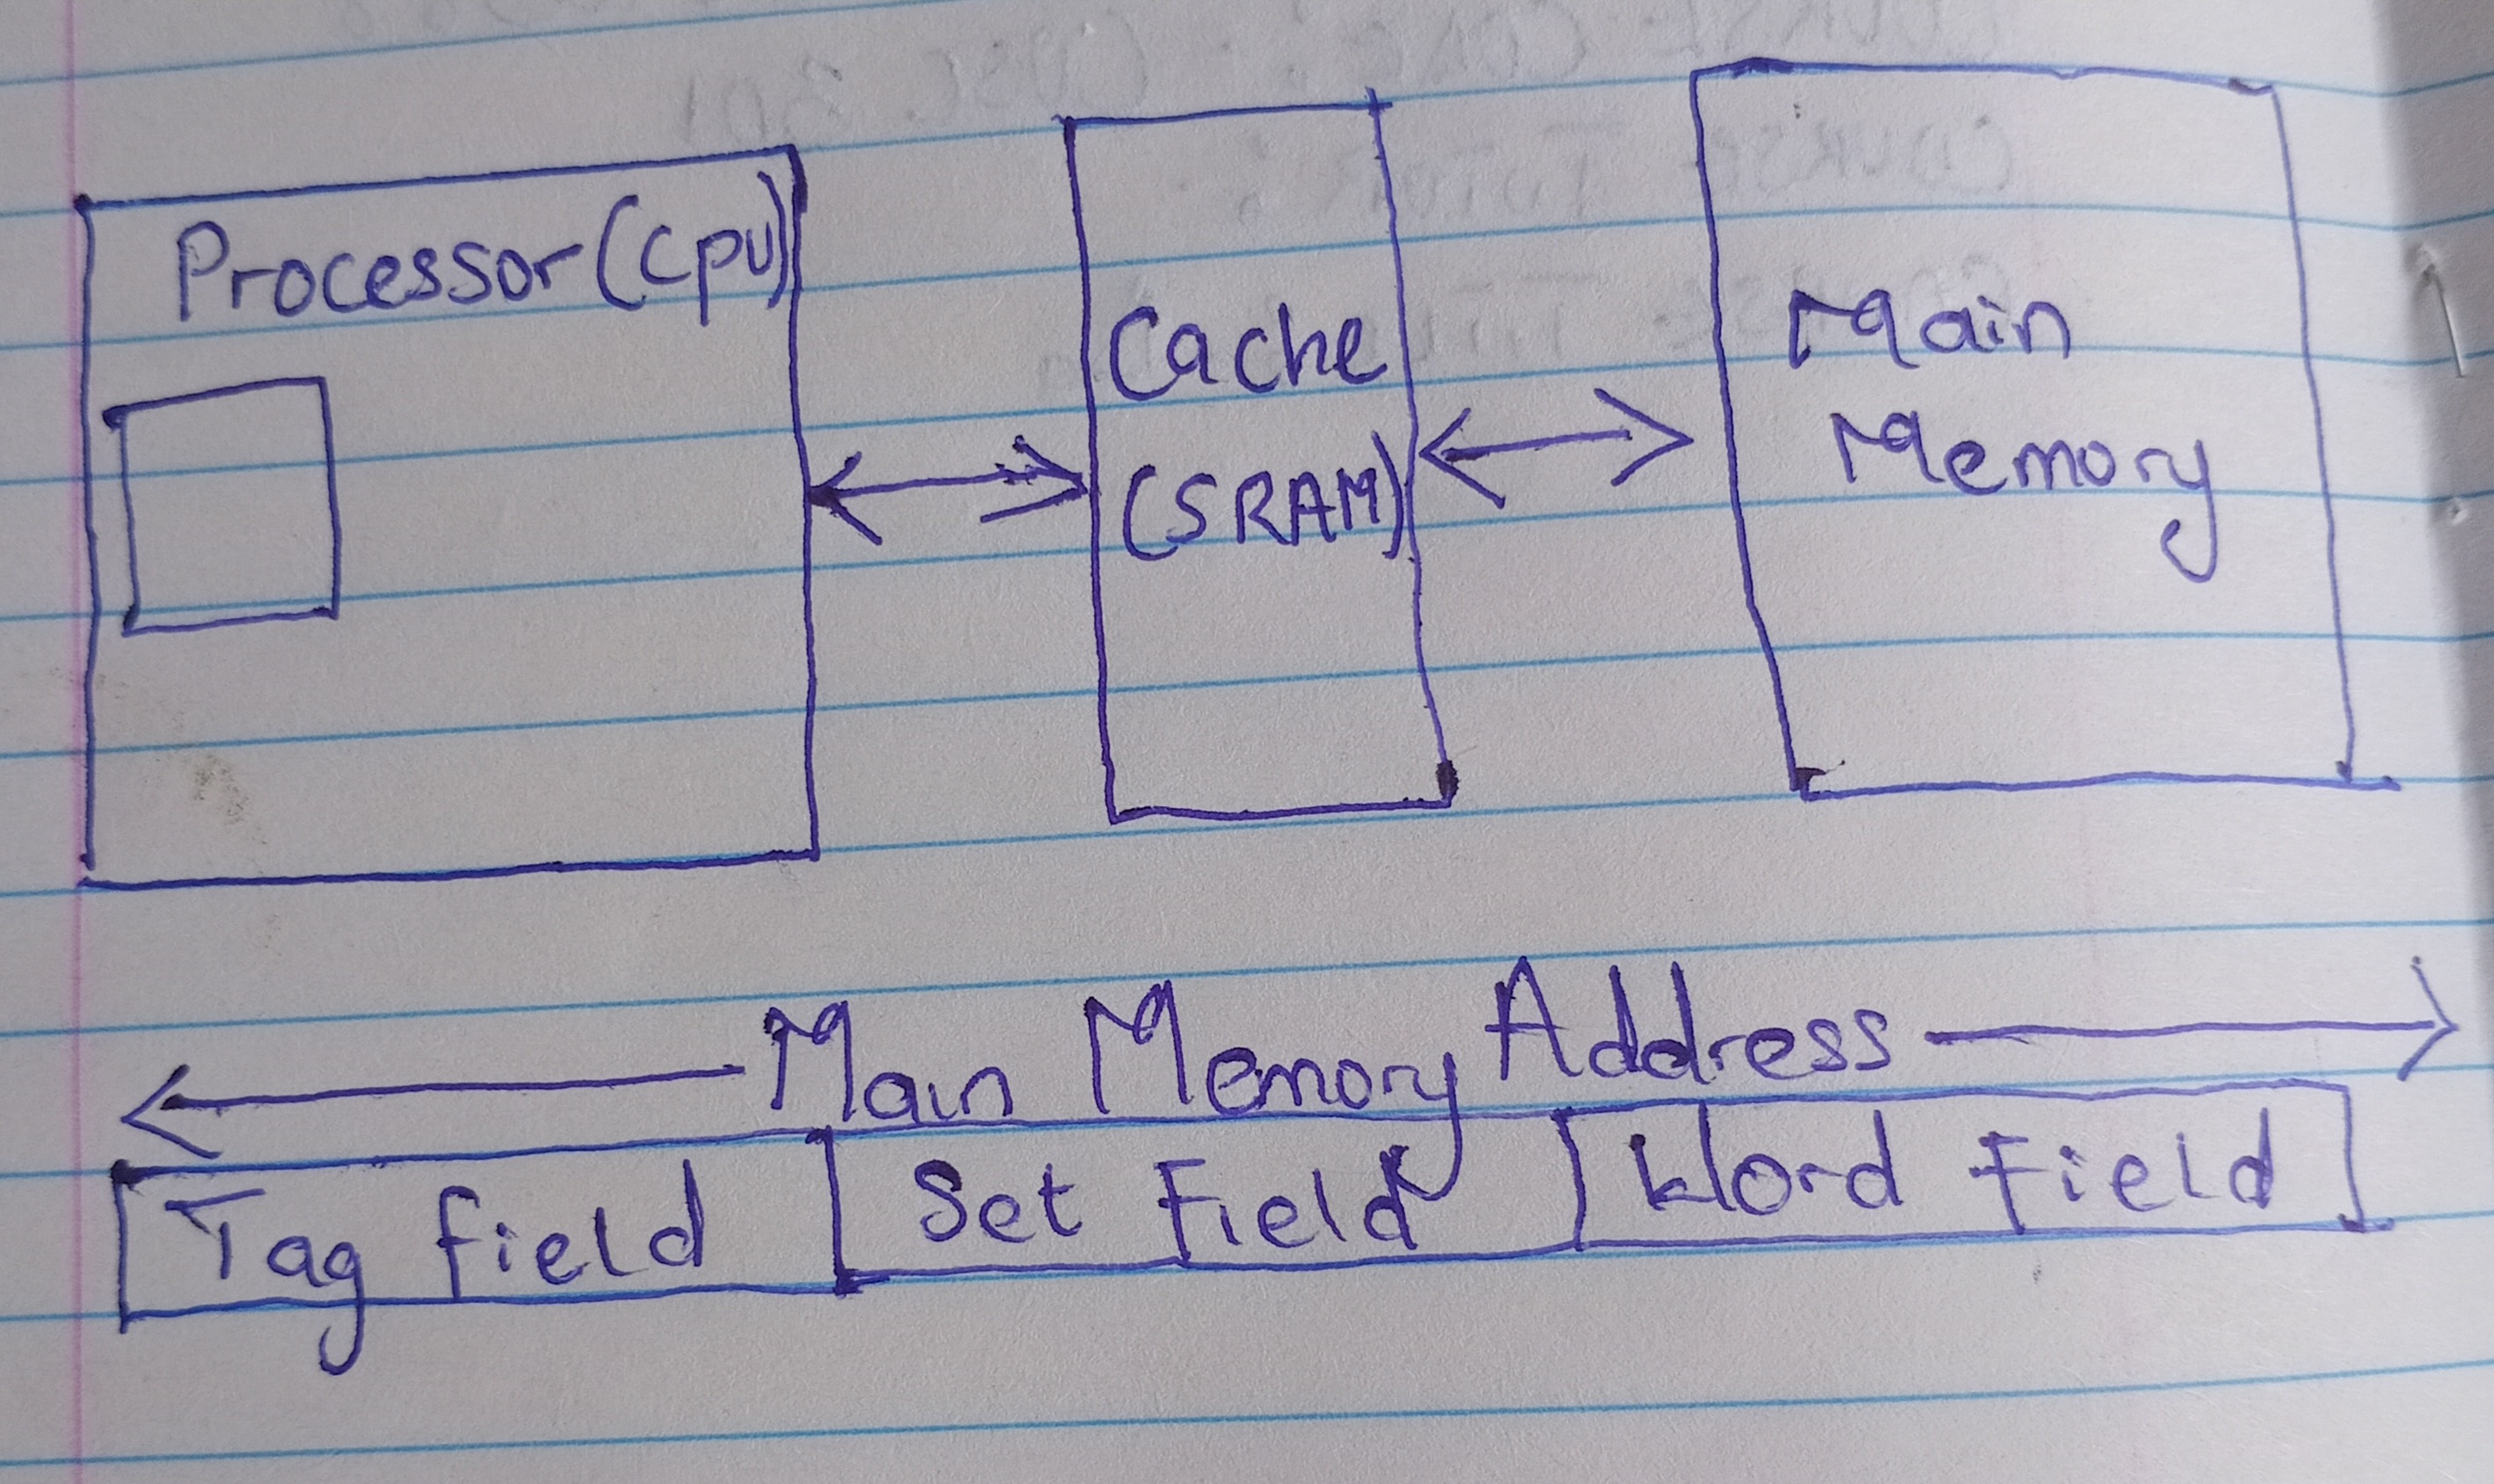 Processor (CPU)
Cache
(SRAM)
Main
Memory
Main Memory Address
Tag field
Set Field
Word Field